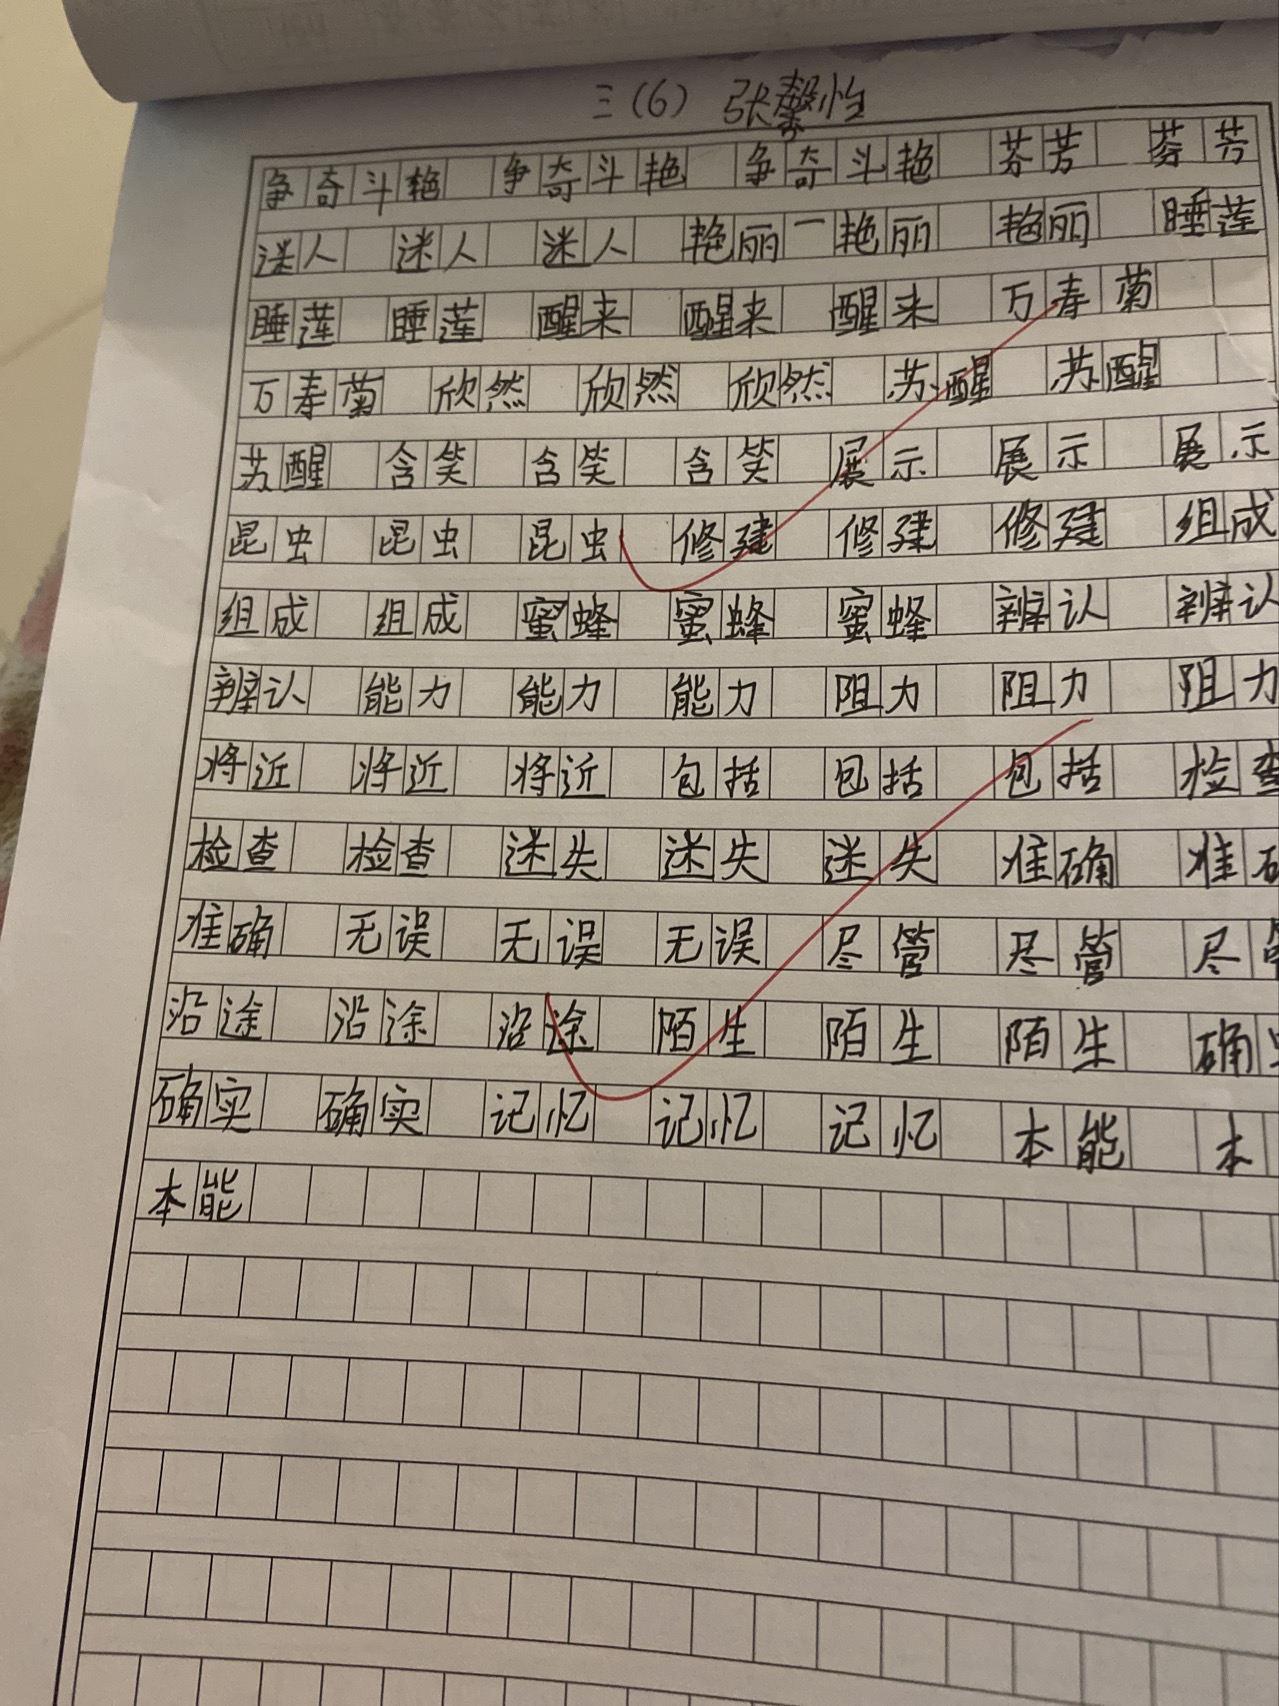 三(6) 张馨怡
争奇斗艳 争奇斗艳 争奇斗艳 芬芳 芬芳
迷人 迷人 迷人 艳丽 艳丽 艳丽 睡莲
睡莲 睡莲 醒来 醒来 醒来 万寿菊
万寿菊 欣然 欣然 欣然 苏醒 苏醒
苏醒 含笑 含笑 含笑 展示 展示 展示
昆虫 昆虫 昆虫 修建 修建 修建 组成
组成 组成 蜜蜂 蜜蜂 蜜蜂 辨认 辨认
辨认 能力 能力 能力 阻力 阻力 阻力
将近 将近 将近 包括 包括 包括 检查
检查 检查 迷失 迷失 迷失 准确 准确
准确 无误 无误 无误 尽管 尽管 尽管
沿途 沿途 沿途 陌生 陌生 陌生 确
确实 确实 记忆 记忆 记忆 本能 本
本能